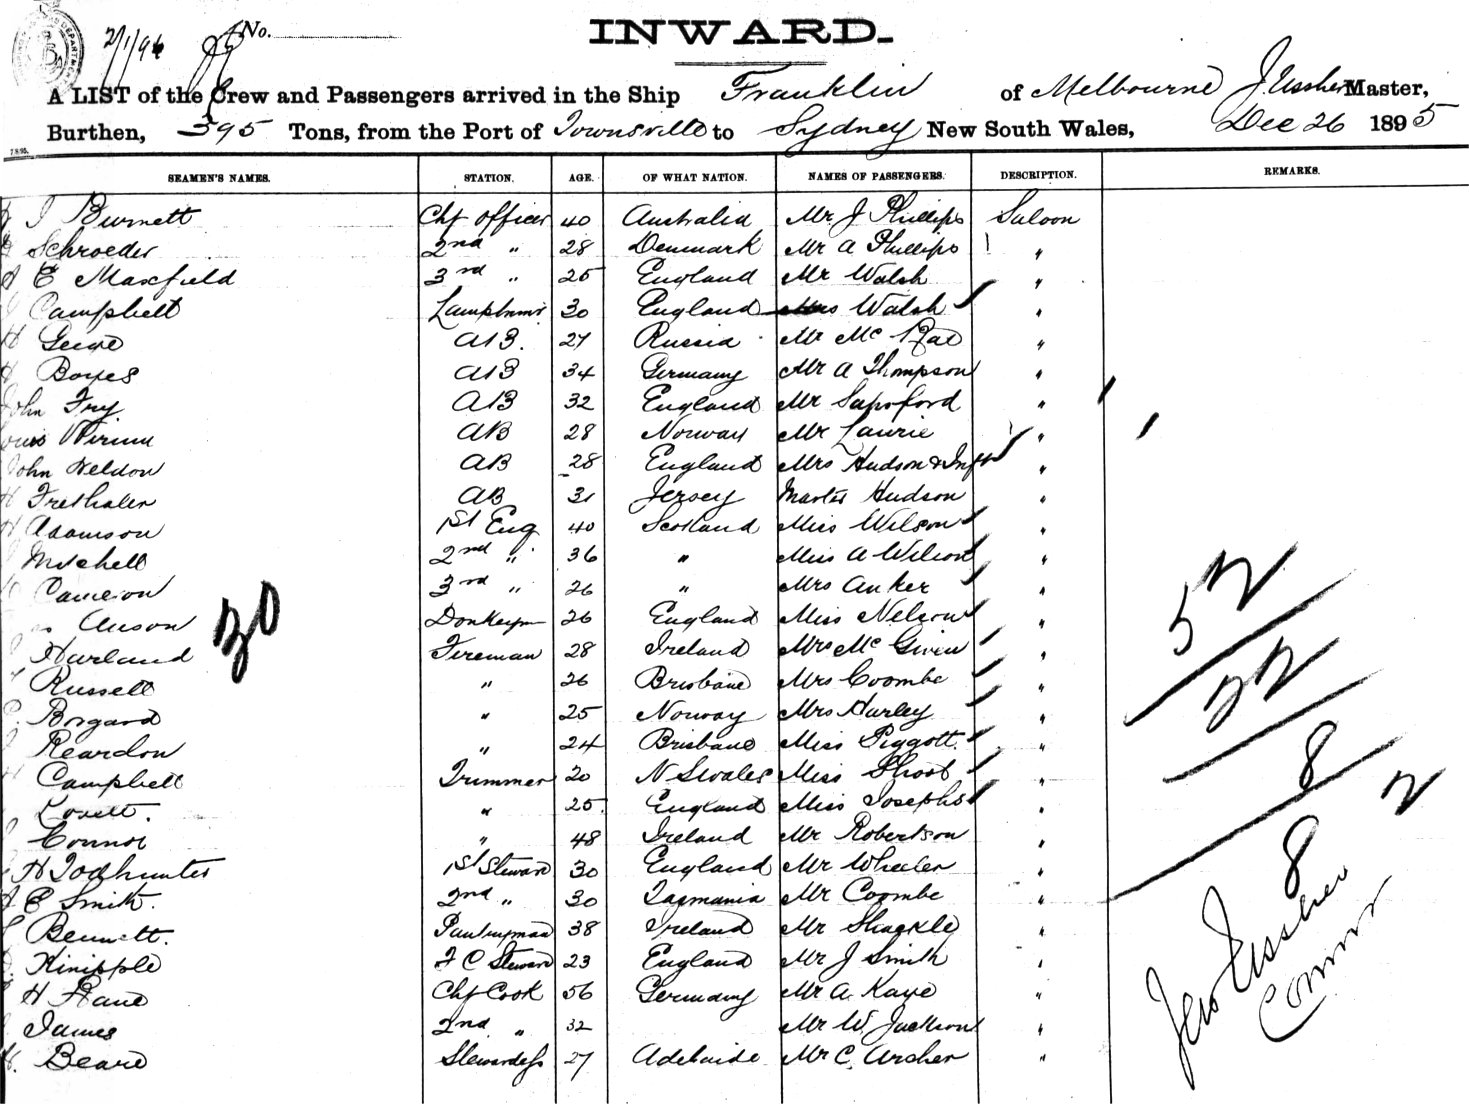 2/1/96 No. INWARD.
A LIST of the Crew and Passengers arrived in the Ship Franklin of Melbourne J. Ussher Master,
Burthen, 395 Tons, from the Port of Townsville to Sydney New South Wales, Dec 26 1895
7.8.95.
SEAMEN'S NAMES. STATION. AGE. OF WHAT NATION. NAMES OF PASSENGERS. DESCRIPTION. REMARKS.
J Burnett Chf officer 40 Australia Mr J Phillips Saloon
Schroeder 2nd " 28 Denmark Mr A Phillips "
E Maxfield 3rd " 25 England Mr Walsh "
Campbell Lamptrimr 30 England Mrs Walsh "
H AB. 27 Russia Mr Mc Rae "
Boyes AB 34 Germany Mr A Thompson "
John Fry AB 32 England Mr Sapsford "
AB 28 Norway Mr Lawrie "
John Weldon AB 28 England Mrs Hudson & Inft "
H Frethaler AB 31 Jersey Master Hudson "
H Adamson 1st Eng 40 Scotland Miss Wilson "
Mitchell 2nd " 36 " Miss A Wilson "
Cameron 3rd " 26 " Mrs Anker "
Anson 30 Donkeymn 26 England Miss Nelson "
Harland Fireman 28 Ireland Mrs Mc Given "
Russell " 26 Brisbane Mrs Coombe "
Borgard " 25 Norway Mrs Hurley "
Reardon " 24 Brisbane Miss Piggott. "
Campbell Trimmer 20 N S Wales Miss "
Lovett. " 25 England Miss Josephs "
Connor " 48 Ireland Mr Robertson "
H Todhunter 1st Steward 30 England Mr Wheeler "
E Smith. 2nd " 30 Tasmania Mr Coombe "
Bennett. Pantryman 38 Ireland Mr Shackle "
Kinipple F C Steward 23 England Mr J Smith "
H Chf Cook 56 Germany Mr A. Kaye "
James 2nd " 32 Mr W. Jackson "
Beard Stewardess 27 Adelaide Mr C. Archer "
52
22
8
2
8
Ussher